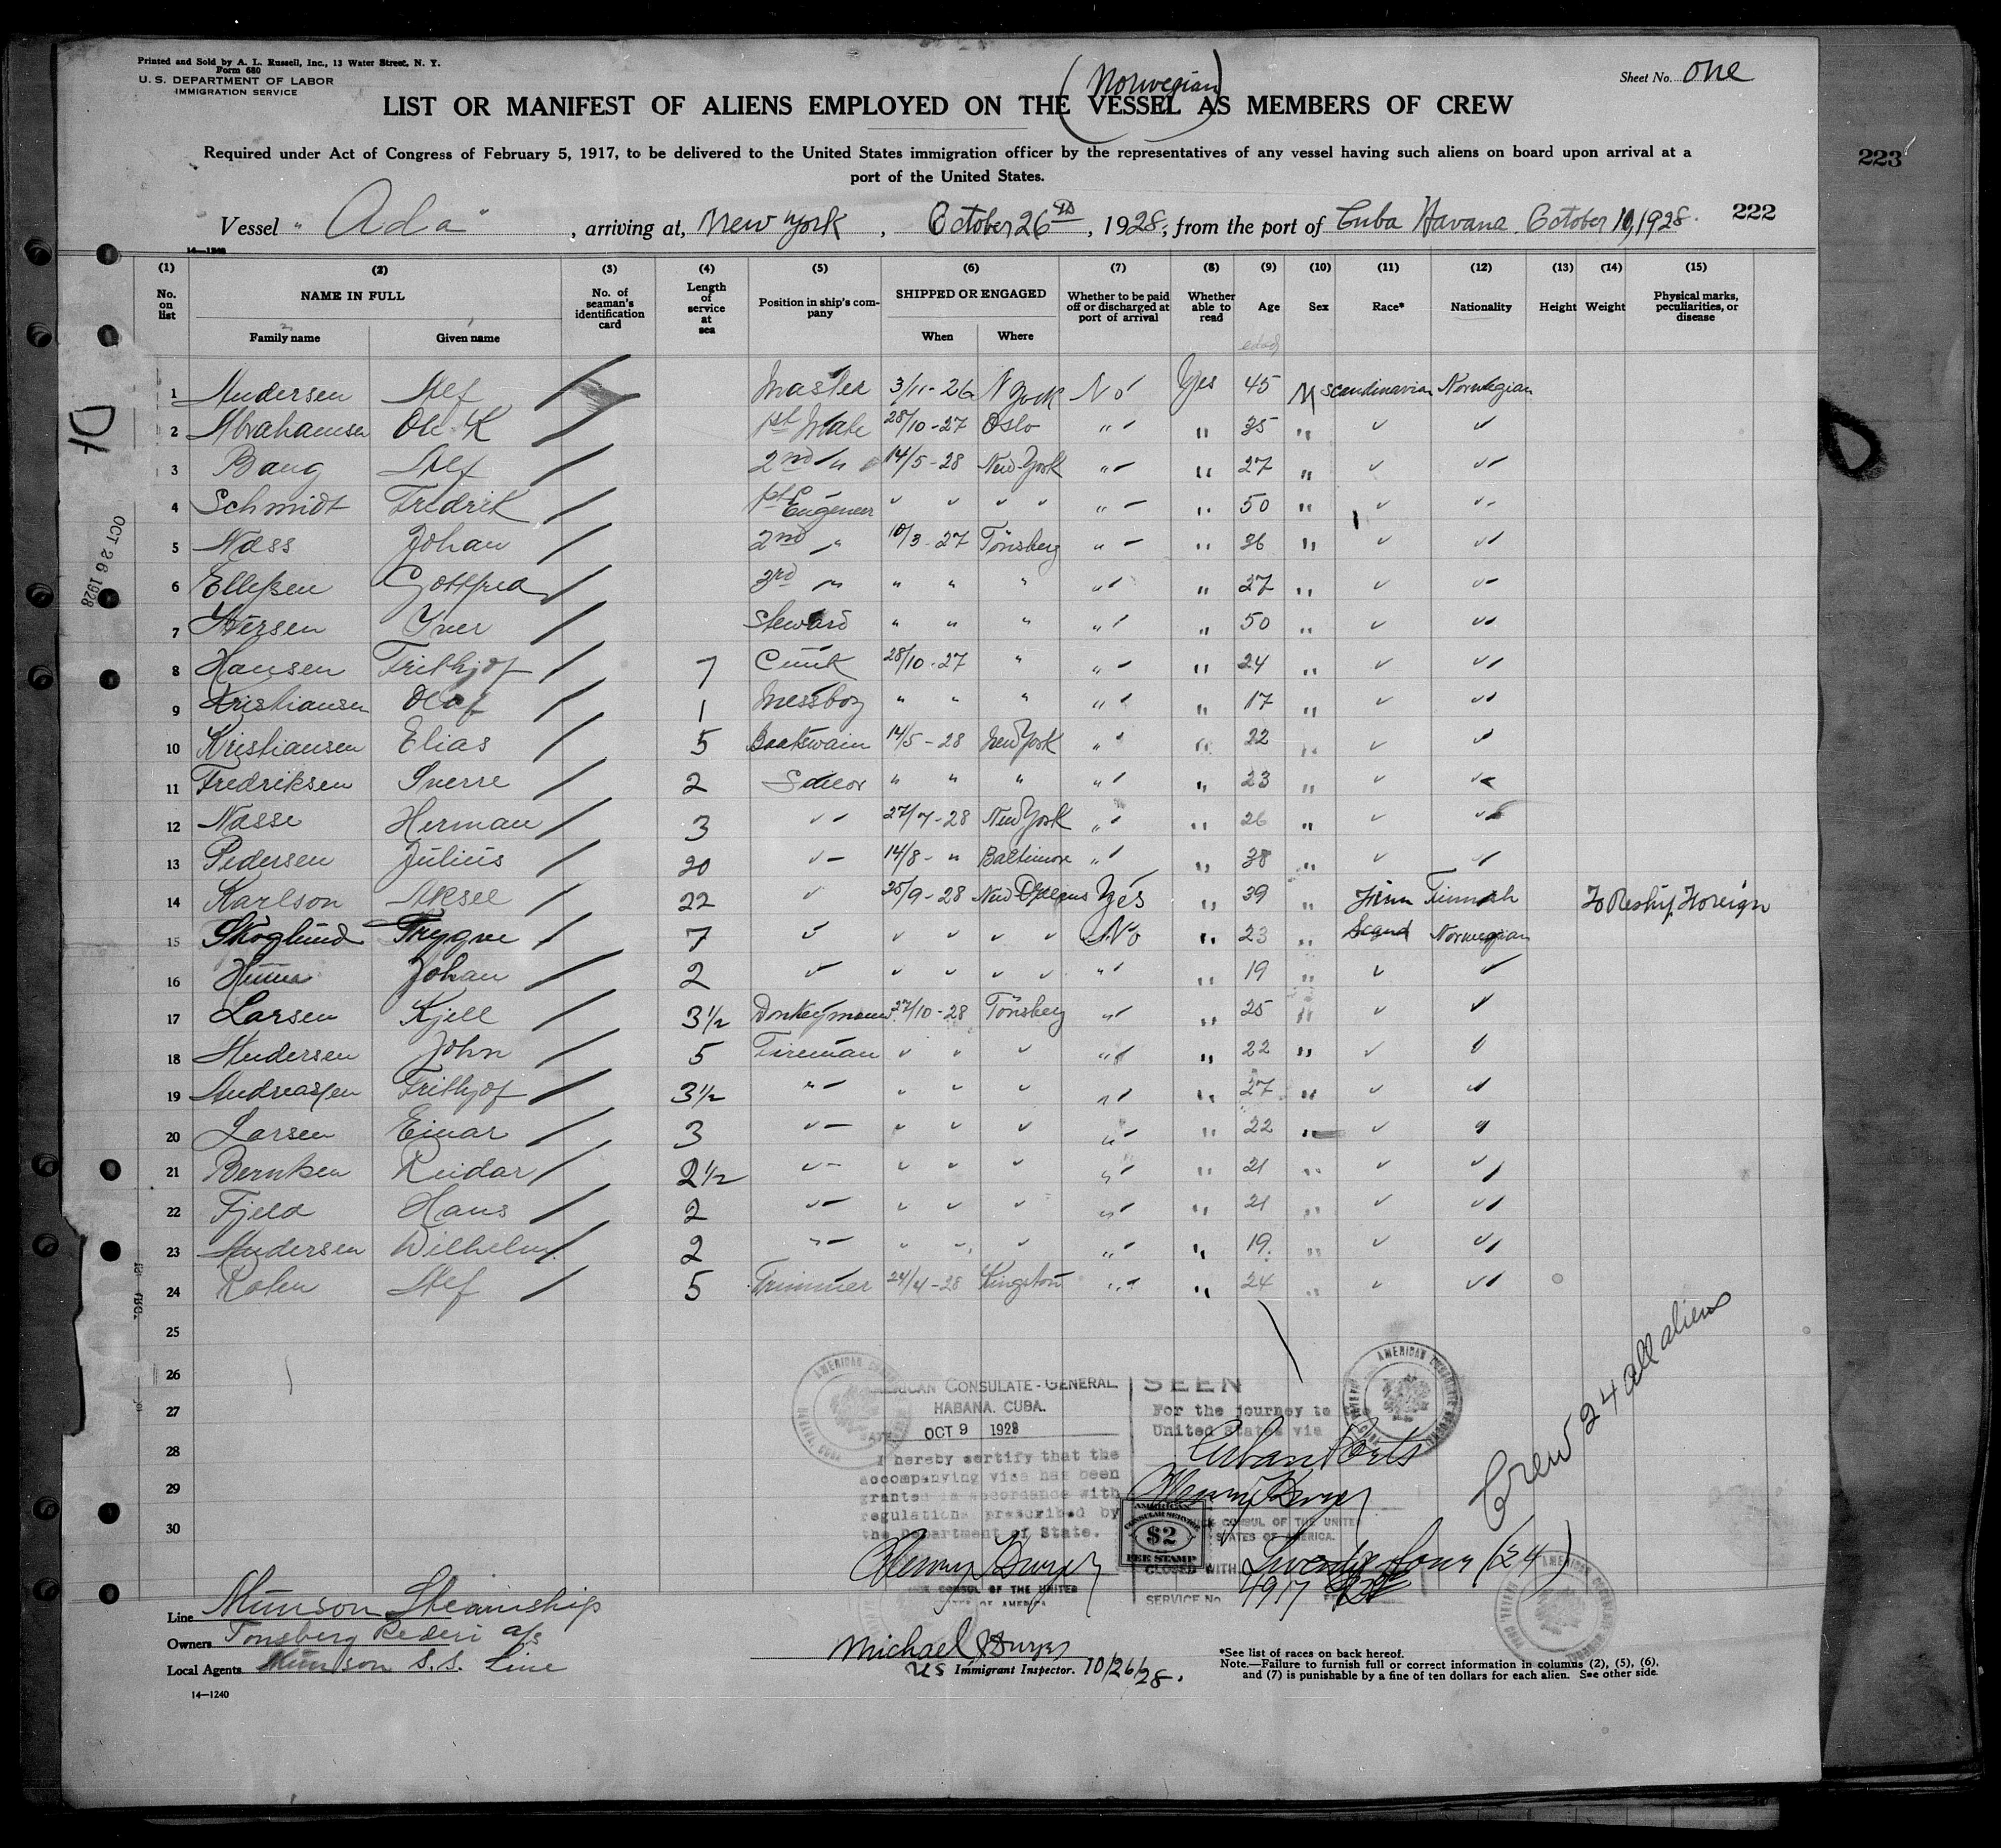 Printed and Sold by A. L. Russell, Inc., 13 Water Street, N. Y.
Form 680
U. S. DEPARTMENT OF LABOR
IMMIGRATION SERVICE
Sheet No. One
(Norwegian)
LIST OR MANIFEST OF ALIENS EMPLOYED ON THE VESSEL AS MEMBERS OF CREW
Required under Act of Congress of February 5, 1917, to be delivered to the United States immigration officer by the representatives of any vessel having such aliens on board upon arrival at a
port of the United States.
223
222
Vessel "Ada", arriving at, New York, October 26th, 1928, from the port of Cuba Havana October 10, 1928.
14—1240
(1) (2) (3) (4) (5) (6) (7) (8) (9) (10) (11) (12) (13) (14) (15)
No. on list
NAME IN FULL
Family name
Given name
No. of seaman's identification card
Length of service at sea
Position in ship's company
SHIPPED OR ENGAGED
When
Where
Whether to be paid off or discharged at port of arrival
Whether able to read
Age
Sex
Race*
Nationality
Height
Weight
Physical marks, peculiarities, or disease
edad
1 Andersen Alef Master 3/11-26 N York No Yes 45 M Scandinavian Norwegian
2 Abrahamsen Ole K 1st Mate 28/10-27 Oslo " " 35 " ✓ ✓
3 Bang Alef 2nd " 14/5-28 New York " " 27 " ✓ ✓
4 Schmidt Fredrik 1st Engeneer ✓ ✓ ✓ ✓ " " 50 " ✓ ✓
5 Næss Johan 2nd " 10/3-27 Tönsberg " " 36 " ✓ ✓
6 Ellefsen Gottfred 3rd " " " " " " 27 " ✓ ✓
7 Iversen Iver Steward " " " " " 50 " ✓ ✓
8 Hansen Frithjof 7 Cook 28/10-27 " " " 24 " ✓ ✓
9 Kristiansen Olaf 1 Messboy " " " " " 17 " ✓ ✓
10 Kristiansen Elias 5 Boatswain 14/5-28 New York " " 22 " ✓ ✓
11 Fredriksen Sverre 2 Sailor " " " " " 23 " ✓ ✓
12 Nasse Herman 3 ✓ 27/7-28 New York " " 26 " ✓ ✓
13 Pedersen Julius 20 ✓ 14/8- " Baltimore " " 38 " ✓ ✓
14 Karlson Aksel 22 ✓ 25/9-28 New Orleans Yes " 39 " Finn Finnish To Reship Foreign
15 Skoglund Trygve 7 ✓ ✓ ✓ ✓ ✓ No " 23 " Scand Norwegian
16 Johan 2 ✓ ✓ ✓ ✓ ✓ " " 19 " ✓ ✓
17 Larsen Kjell 3½ Donkeyman 27/10-28 Tönsberg " " 25 " ✓ ✓
18 Andersen John 5 Fireman ✓ ✓ ✓ " " 22 " ✓ ✓
19 Andreassen Frithjof 3½ " " ✓ ✓ " " 27 " ✓ ✓
20 Larsen Einar 3 ✓ ✓ ✓ ✓ " " 22 " ✓ ✓
21 Berntsen Reidar 2½ ✓ ✓ ✓ ✓ " " 21 " ✓ ✓
22 Fjeld Hans 2 ✓ ✓ ✓ ✓ " " 21 " ✓ ✓
23 Andersen Wilhelm 2 " " ✓ ✓ " " 19 " ✓ ✓
24 Alef 5 Trimmer 24/4-28 Kingston " " 24 " ✓ ✓
25
26
27
28
29
30
OCT 26 1928
AMERICAN CONSULATE-GENERAL
HABANA, CUBA.
OCT 9 1928
I hereby certify that the
accompanying visa has been
granted in accordance with
regulations prescribed by
the Department of State.
VICE CONSUL OF THE UNITED
STATES OF AMERICA
SEEN
For the journey to the
United States via
Cuban Ports
VICE CONSUL OF THE UNITED
STATES OF AMERICA.
AMERICAN
CONSULAR SERVICE
$2
FEE STAMP
CLOSED WITH Twenty four (24)
SERVICE No. 4917
Crew 24 all aliens
Line Munson Steamship
Owners Tonsberg Rederi a/s
Local Agents Munson S.S. Line
14—1240
Michael
US Immigrant Inspector. 10/26/28.
*See list of races on back hereof.
Note.—Failure to furnish full or correct information in columns (2), (5), (6),
and (7) is punishable by a fine of ten dollars for each alien. See other side.